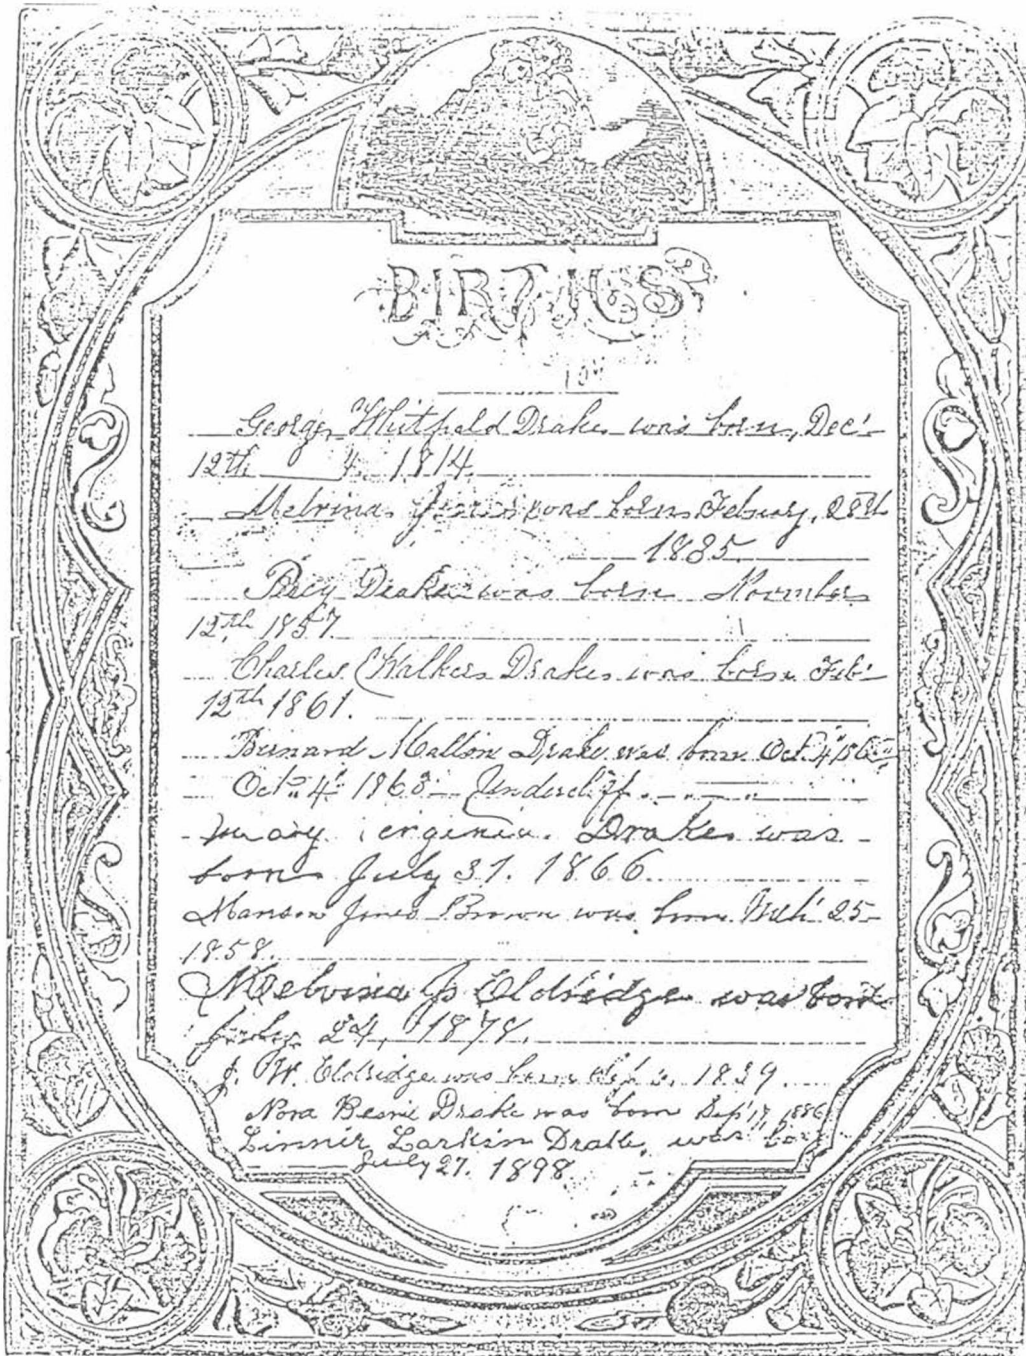 BIRTHS
George Whitfield Drake was born, Dec'
12th 1814
Melvina Jones was born Febuary, 28th
1835
Percy Drake was born November
12th 1857
Charles Walker Drake was born Feb'
12th 1861.
Bernard Mallon Drake was born Oct. 4
Oct. 4 1863 Undercliff
Mary Virginia Drake was
born July 31. 1866
Manson Jones Brown was born Mch' 25
1858.
Melvina J Eldridge was born
24, 1878.
J. W. Eldridge was born Sep 1839.
Nora Bessie Drake was born Sep 17, 1886
Linnir Larkin Drake, was born
July 27. 1898